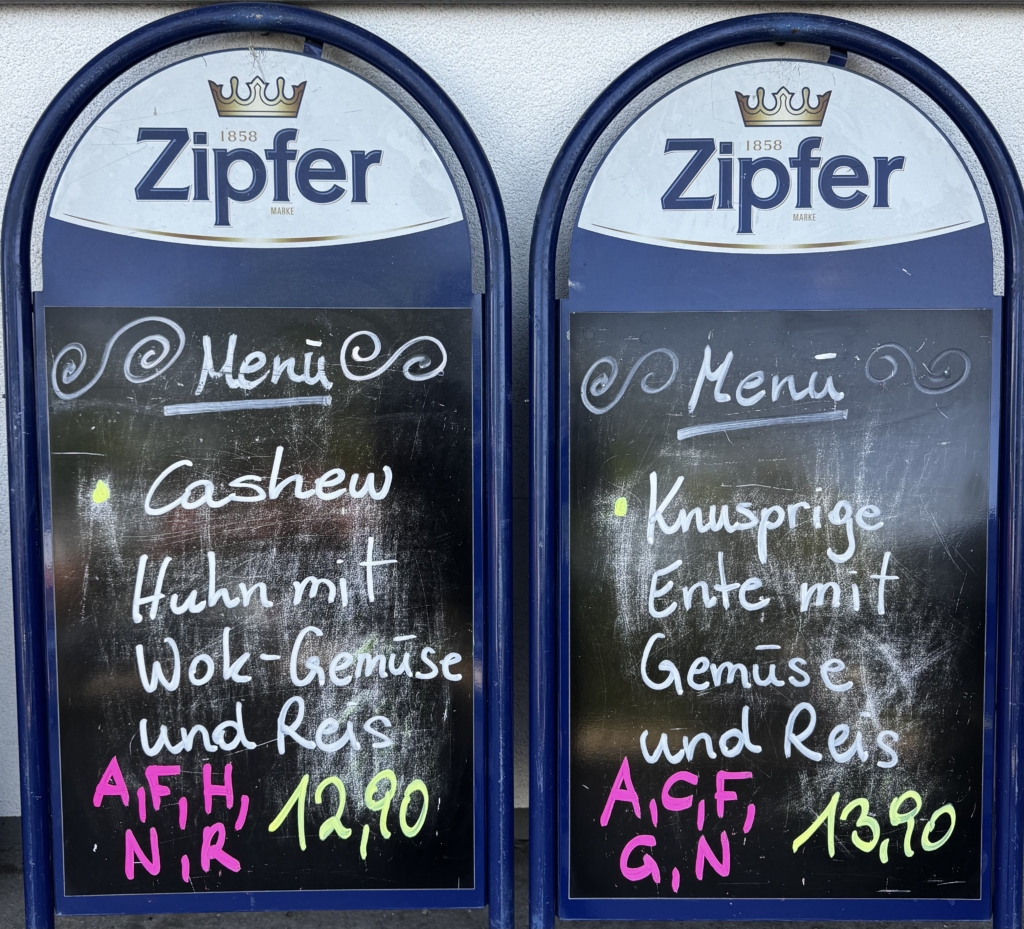 1858
Zipfer
MARKE
Menü
Cashew
Huhn mit
Wok-Gemüse
und Reis
A, F, H,
N, R
12,90
1858
Zipfer
MARKE
Menü
Knusprige
Ente mit
Gemüse
und Reis
A, C, F,
G, N
13,90